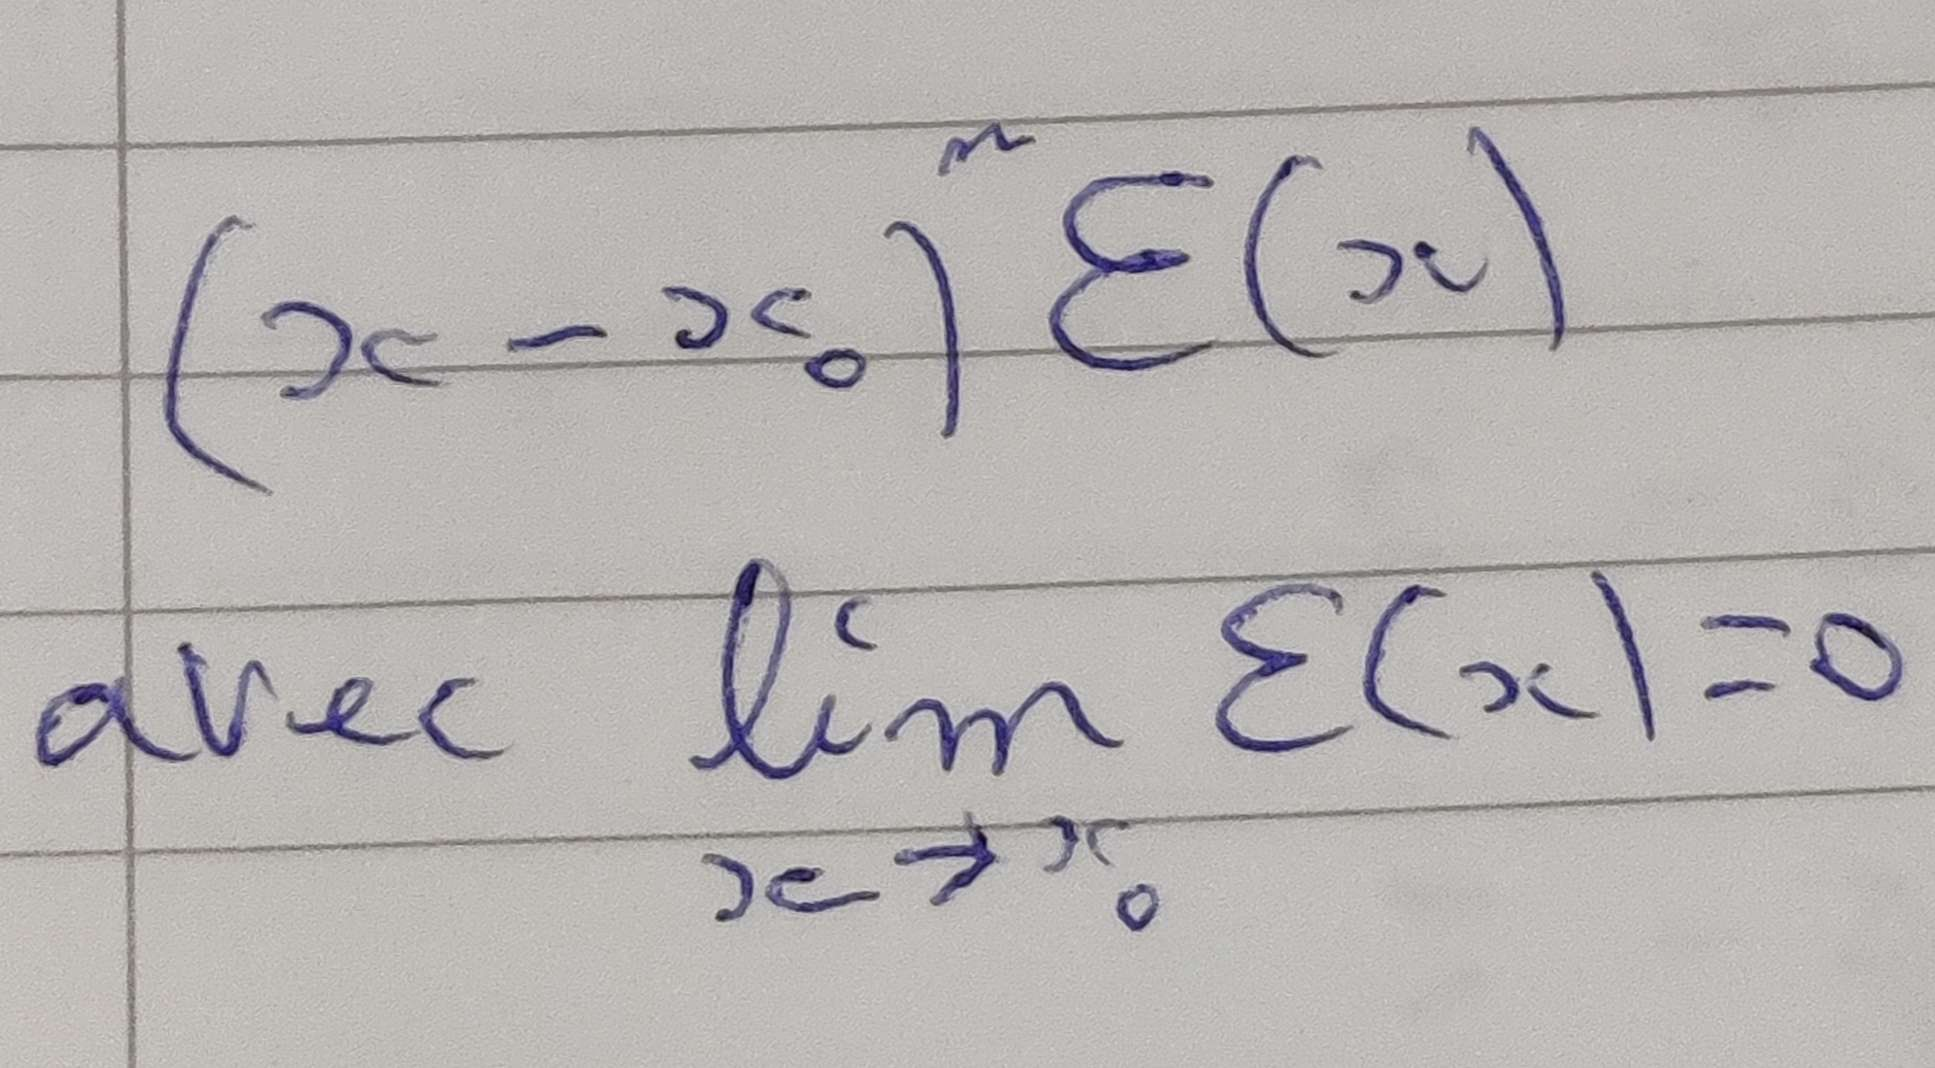 (x - x₀)ⁿ ε(x)
avec lim ε(x) = 0
x → x₀